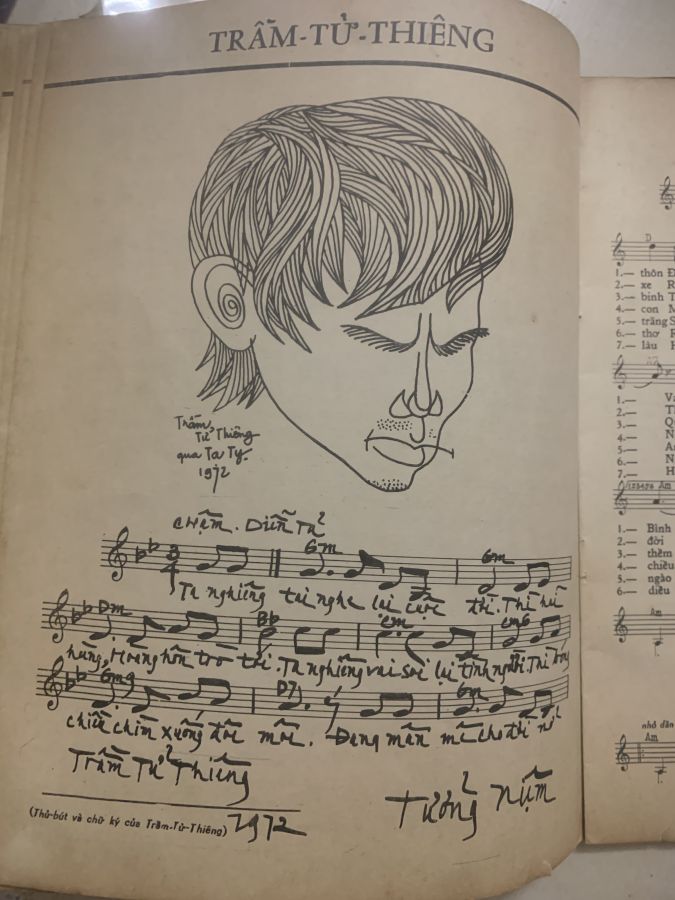 TRẦM-TỬ-THIÊNG
Trầm
Tử Thiêng
qua Tạ Tỵ.
1972
Chậm. Diễn Tả
3
4
Gm Gm
Ta nghiêng tai nghe lại cuộc đời. Thì hãi
Dm Bb Cm Cm6
hùng, Hoàng hôn trờ tới. Ta nghiêng vai soi lại tình người. Thì bóng
Gm9 D7 Gm
chiều chìm xuống đôi môi. Đang mân mê cho đời nở
Trầm Tử Thiêng
Tưởng Niệm
(Thủ-bút và chữ ký của Trầm-Tử-Thiêng) 1972
D
1.— thôn Đ
2.— xe R
3.— binh T
4.— con M
5.— trăng S
6.— thơ
7.— lâu H
A7
1.— Và
2.— Th
3.— Qu
4.— N
5.—
6.— N
7.— H
123456 Am
1.— Bình
2.— đời
3.— thềm
4.— chiều
5.— ngào
6.— diêu
Am
nhỏ dần
Am